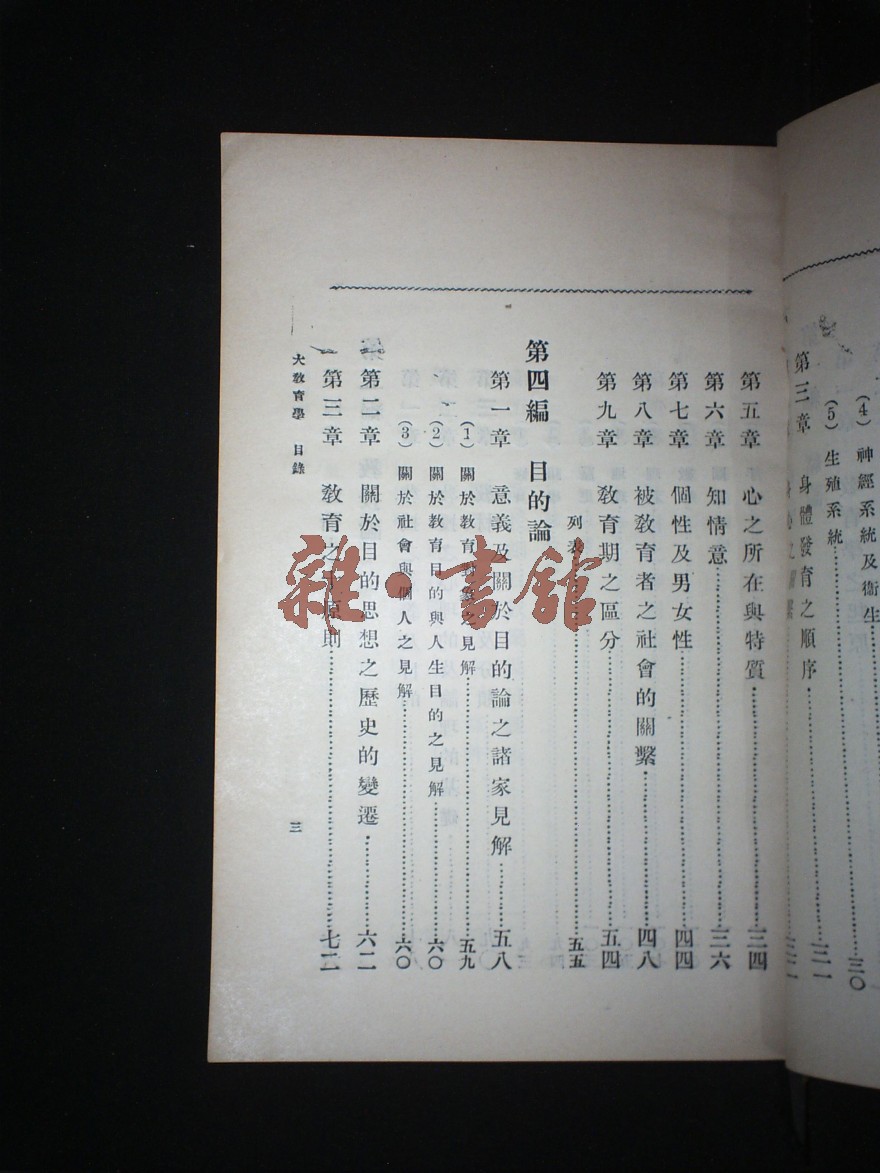 (4) 神經系統及衞生 三〇
(5) 生殖系統 三一
第三章 身體發育之順序
第五章 心之所在與特質 三四
第六章 知情意 三六
第七章 個性及男女性 四四
第八章 被敎育者之社會的關繫 四八
第九章 敎育期之區分 五四
列表 五五
第四編 目的論
第一章 意義及關於目的論之諸家見解 五八
(1) 關於敎育 之見解 五九
(2) 關於敎育目的與人生目的之見解 六〇
(3) 關於社會與個人之見解 六〇
第二章 關於目的思想之歷史的變遷 六二
第三章 敎育之 原則 七二
大敎育學 目錄
三
雜·書館